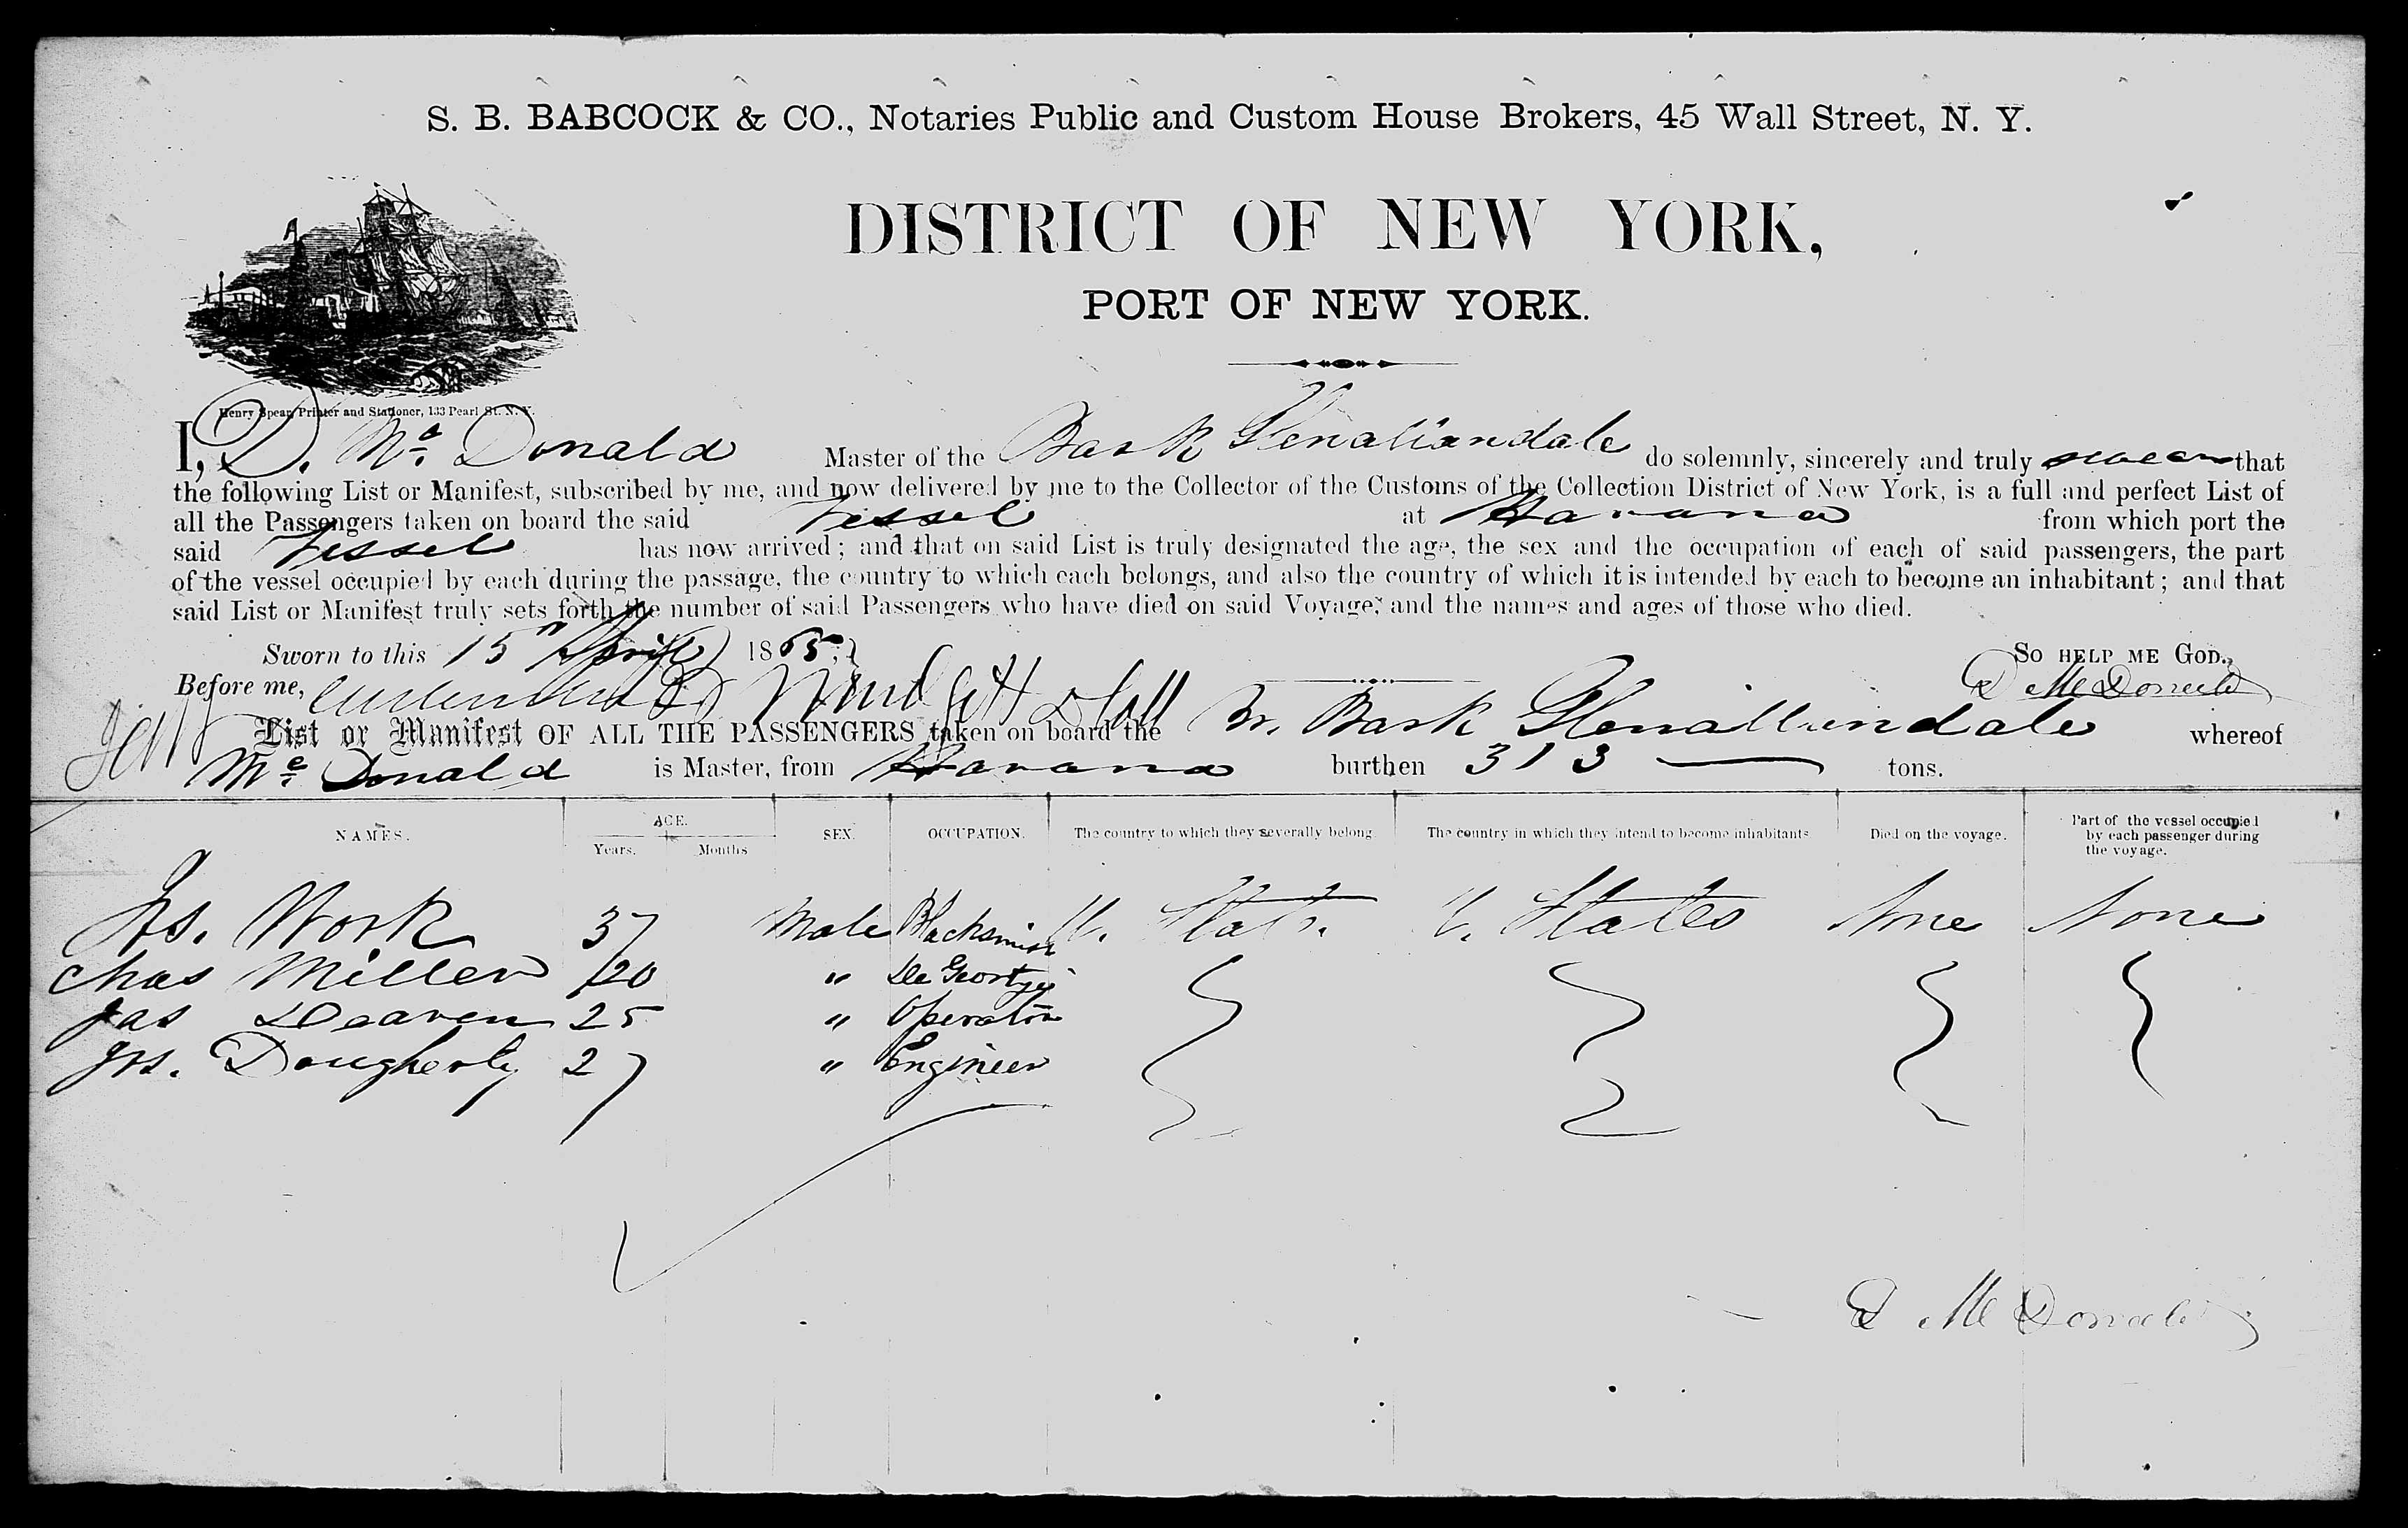 S. B. BABCOCK & CO., Notaries Public and Custom House Brokers, 45 Wall Street, N. Y.
DISTRICT OF NEW YORK,
PORT OF NEW YORK.
Henry Spear, Printer and Stationer, 133 Pearl St. N. Y.
I, D. Mc Donald Master of the Bark Glenaliandale do solemnly, sincerely and truly swear that
the following List or Manifest, subscribed by me, and now delivered by me to the Collector of the Customs of the Collection District of New York, is a full and perfect List of
all the Passengers taken on board the said Vessel at Havana from which port the
said Vessel has now arrived; and that on said List is truly designated the age, the sex and the occupation of each of said passengers, the part
of the vessel occupied by each during the passage, the country to which each belongs, and also the country of which it is intended by each to become an inhabitant; and that
said List or Manifest truly sets forth the number of said Passengers who have died on said Voyage, and the names and ages of those who died.
Sworn to this 15th April 1865, So HELP ME GOD.
Before me, D McDonald
List or Manifest OF ALL THE PASSENGERS taken on board the Br. Bark Glenallandale whereof
Mc Donald is Master, from Havana burthen 313 tons.
NAMES. AGE. Years. Months SEX. OCCUPATION. The country to which they severally belong. The country in which they intend to become inhabitants Died on the voyage. Part of the vessel occupied by each passenger during the voyage.
Jas. Work 37 Male Blacksmith U. States U. States None None
Chas Miller 20 "
Jas Deaven 25 " Operator
Jas. Dougherty 27 " Engineer
D McDonald